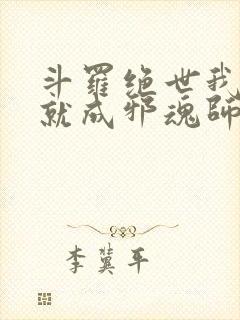 斗羅绝世我
就成邪魂師
李冀平